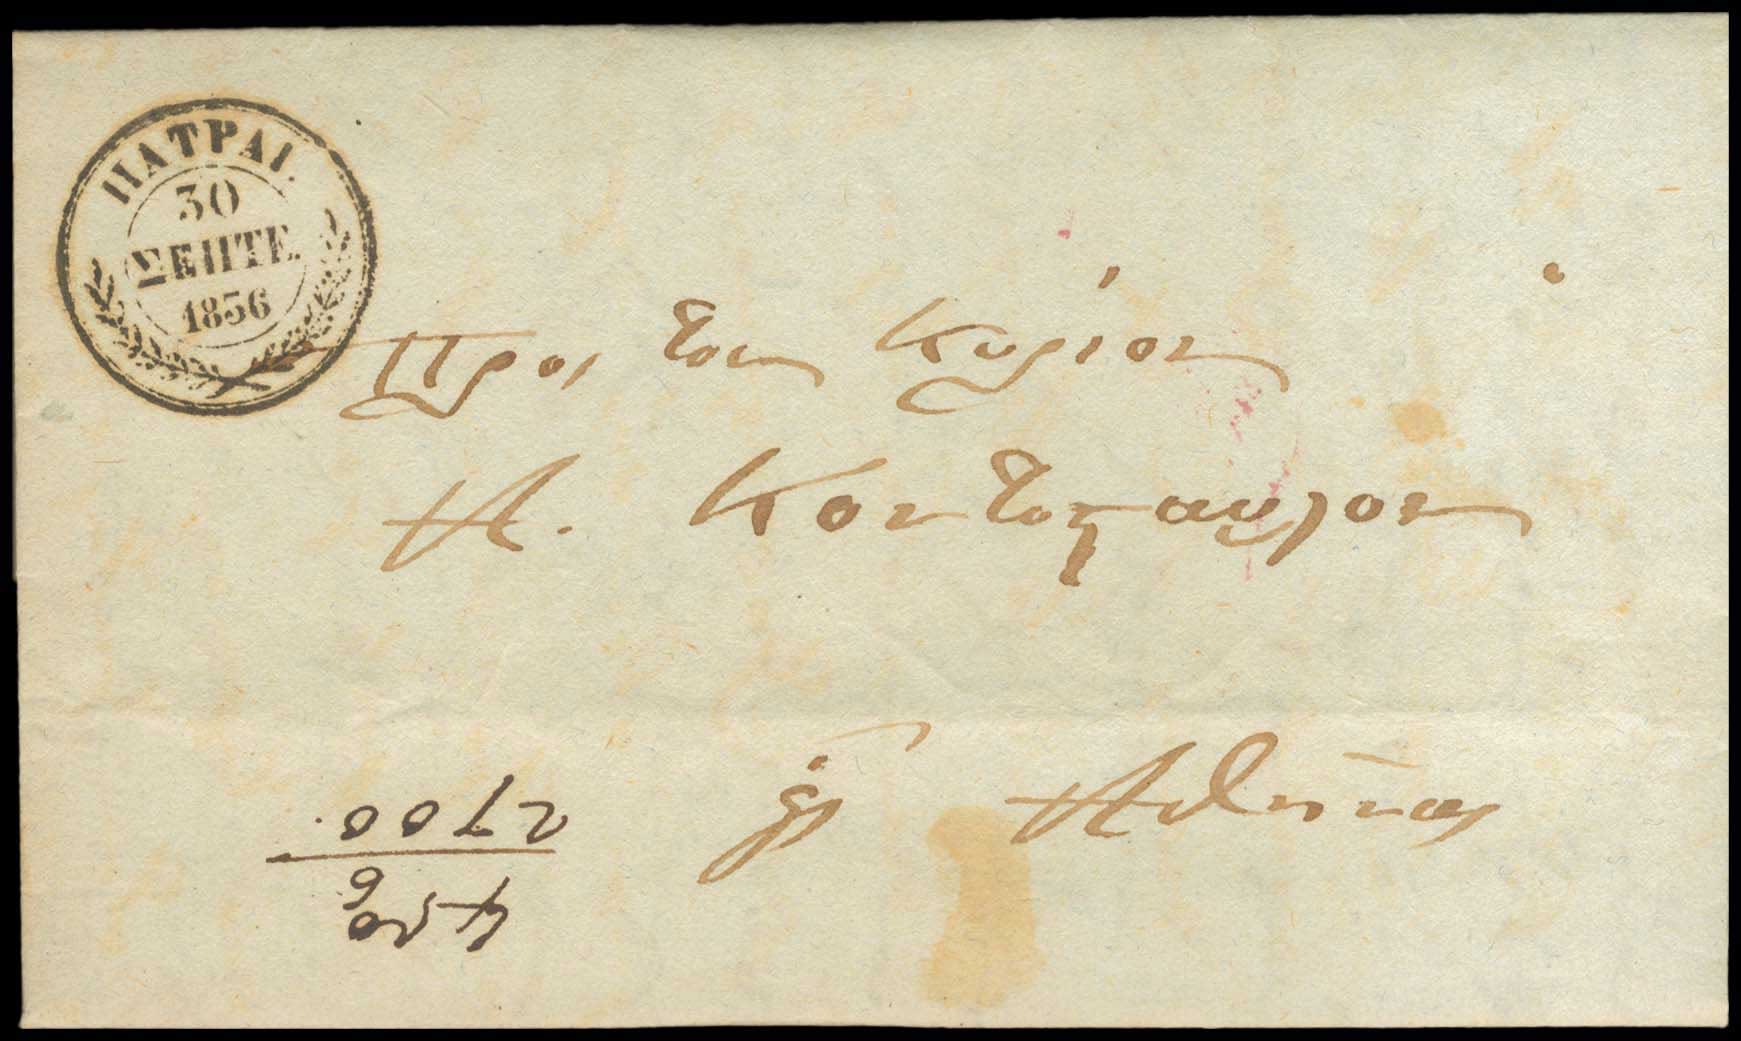 ΠΑΤΡΑΙ.
30
ΣΕΠΤΕ.
1836
Προς τον Κυριον
Α. Κοντοσταυλον
εἰς Αθηνας
2700.